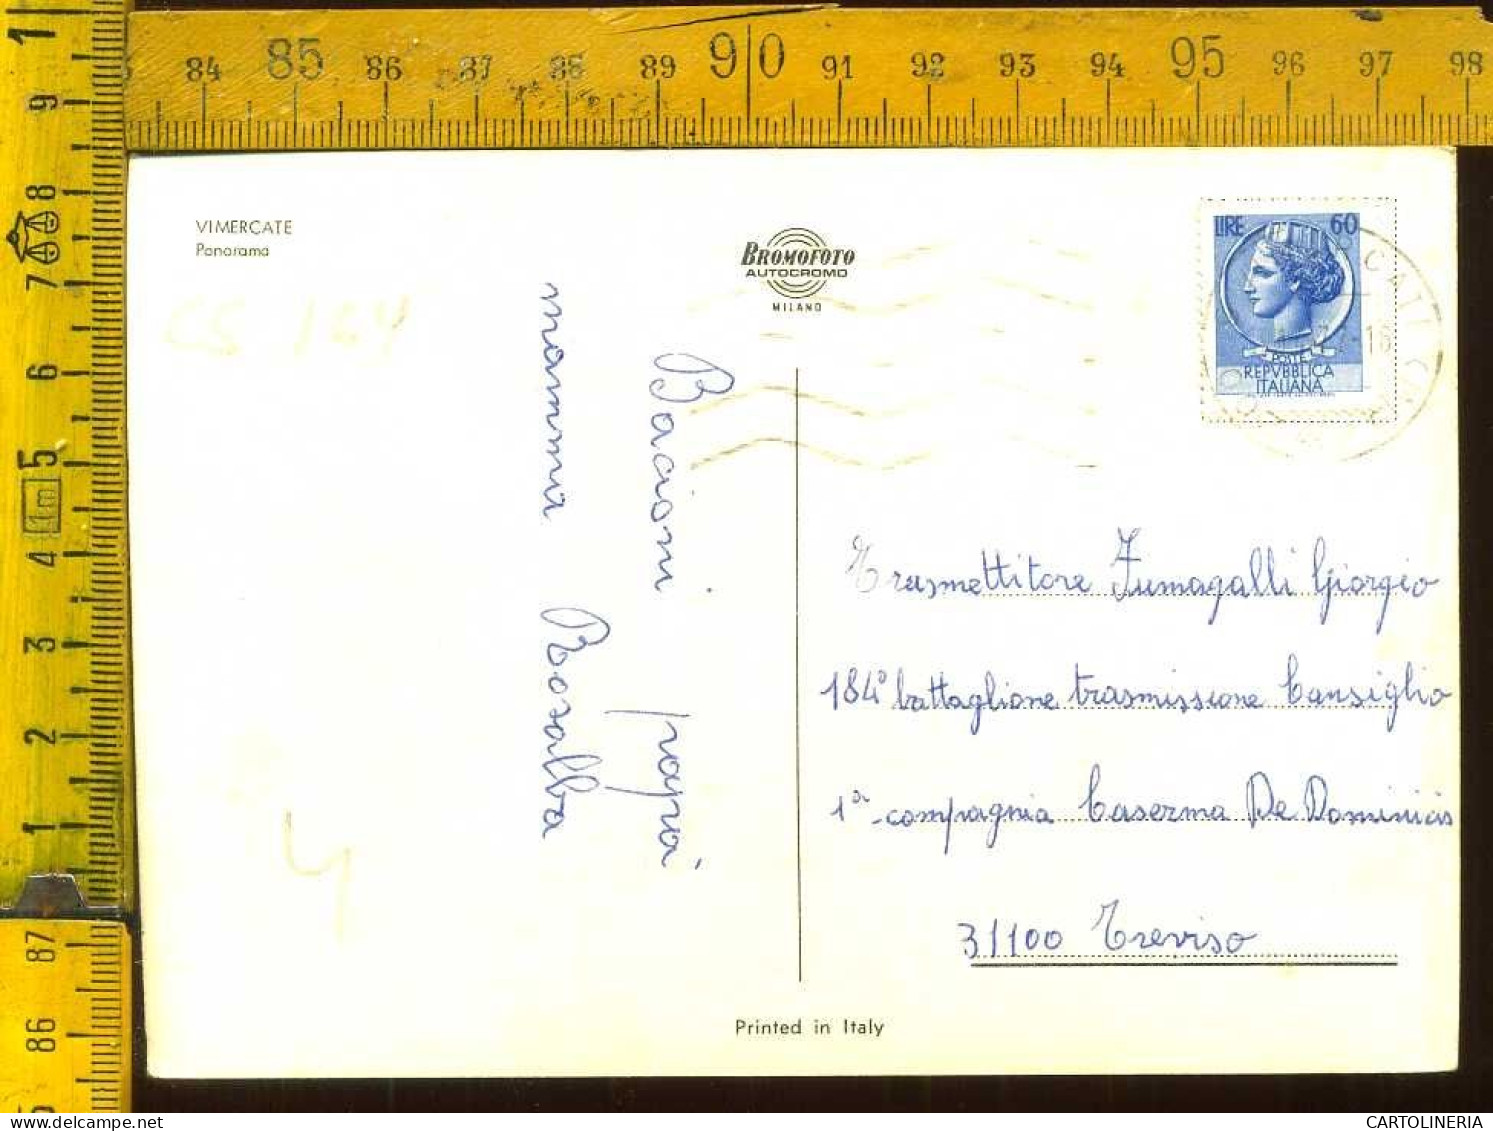 84 85 86 87 88 89 90 91 92 93 94 95 96 97 98
1
9
8
7
6
5
1m
4
3
2
1
87
86
VIMERCATE
Panorama
BROMOFOTO
AUTOCROMO
MILANO
LIRE 60
POSTE
REPVBBLICA
ITALIANA
Bacioni papà
mamma Rosalba
Trasmettitore Fumagalli Giorgio
184° battaglione trasmissione Cansiglio
1a compagnia Caserma De Dominicis
31100 Treviso
Printed in Italy
CARTOLINERIA